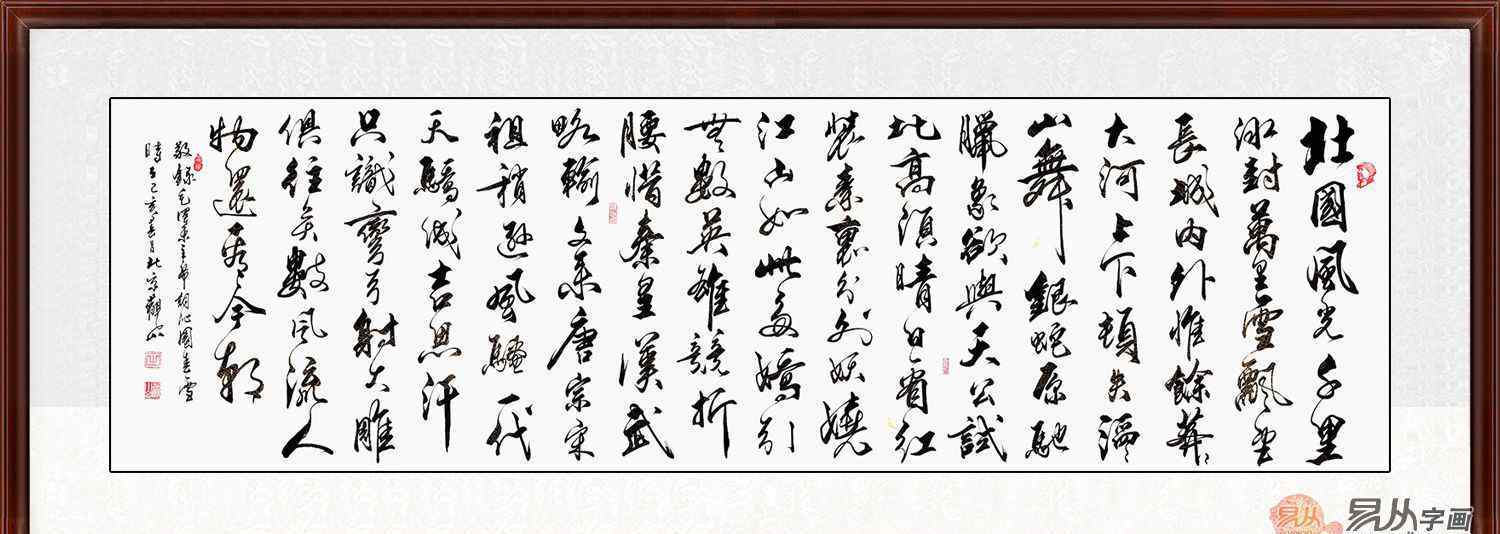 北國風光千里
冰封萬里雪飄望
長城内外惟餘莽〻
大河上下頓失滔〻
山舞銀蛇原馳
臘象欲與天公試
比高須晴日看紅
裝素裹分外妖嬈
江山如此多嬌引
無數英雄競折
腰惜秦皇漢武
略輸文采唐宗宋
祖稍遜風騷一代
天驕成吉思汗
只識彎弓射大雕
俱往矣數風流人
物還看今朝
敬錄毛澤東主席詞沁園春雪
時在己亥春月北京觀山
易从字画